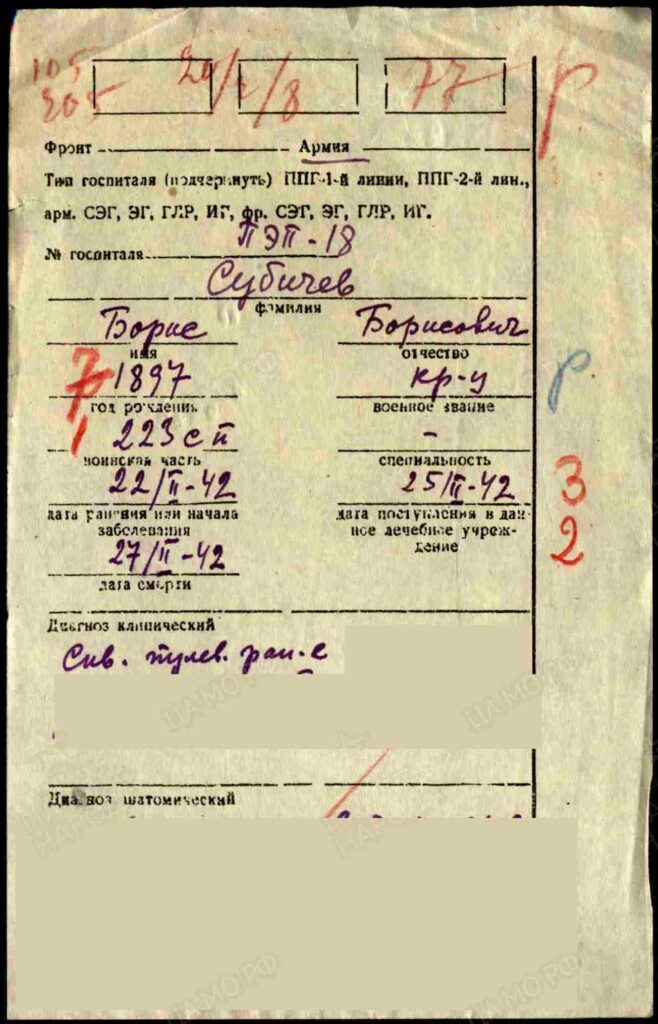 105
205
20/2/8
77
р
Фронт Армия
Тип госпиталя (подчеркнуть) ППГ-1-й линии, ППГ-2-й лин.,
арм. СЭГ, ЭГ, ГЛР, ИГ, фр. СЭГ, ЭГ, ГЛР, ИГ.
№ госпиталя ПЭП-18
Субичев
фамилия
Борис Борисович
имя отчество
7 1897 кр-ц р
год рождения военное звание
1 223 сп -
воинская часть специальность
22/II-42 25/II-42 3
дата ранения или начала дата поступления в дан-
заболевания ное лечебное учреж-
27/II-42 дение 2
дата смерти
Диагноз клинический
Скв. пулев. ран-е
Диагноз анатомический
ЦАМО.РФ
ЦАМО.РФ
ЦАМО.РФ
ЦАМО.РФ